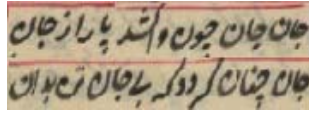 جان جان چون واکشد پا را ز جان
جان چنان گردد که بی جان تن بدان